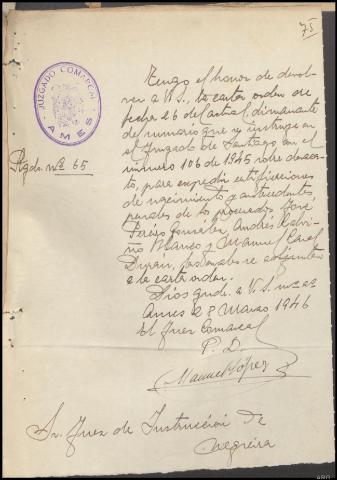 75
JUZGADO COMARCAL
AMES
Rgdo. nº 65
Tengo el honor de devol-
ver a V.S., la carta orden de
fecha 26 del actual, dimanante
del sumario que se instruye en
el Juzgado de Santiago con el
número 106 de 1945 sobre
to, para expedir certificaciones
de nacimiento y antecedentes
penales de los procesados José
González, Andrés
y Manuel
Durán, las cuales se adjuntan
a la carta orden.
Dios gude. a V.S. m. a.
Ames a 8 Marzo 1946
El Juez Comarcal
P. D.
Manuel López
Sr. Juez de Instrucción de
Negreira